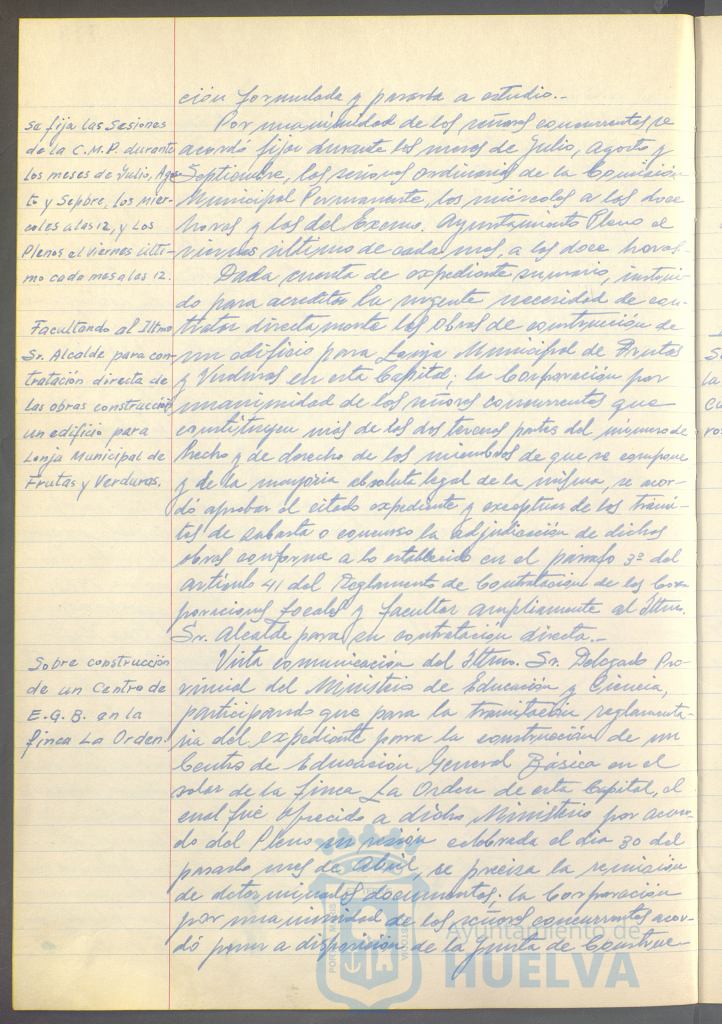 ción formulada y pasarla a estudio.-
Se fija las Sesiones
de la C.M.P. durante
los meses de Julio, Agos
to y Sepbre, los miér-
coles a las 12, y los
Plenos el viernes últi-
mo cada mes a las 12.
Por unanimidad de los señores concurrentes se
acordó fijar durante los meses de Julio, Agosto y
Septiembre, las sesiones ordinarias de la Comisión
Municipal Permanente, los miércoles a las doce
horas y las del Excmo. Ayuntamiento Pleno el
viernes último de cada mes, a las doce horas.
Dada cuenta de expediente sumario, instrui-
do para acreditar la urgente necesidad de con-
Facultando al Iltmo
Sr. Alcalde para con-
tratación directa de
las obras construcción
un edificio para
Lonja Municipal de
Frutas y Verduras.
tratar directamente las obras de construcción de
un edificio para Lonja Municipal de Frutas
y Verduras en esta Capital; la Corporación por
unanimidad de los señores concurrentes que
constituyen más de las dos terceras partes del número de
hecho y de derecho de los miembros de que se compone
y de la mayoría absoluta legal de la misma, se acor-
dó aprobar el citado expediente y exceptuar de los trámi-
tes de subasta o concurso la adjudicación de dichas
obras conforme a lo establecido en el párrafo 3º del
artículo 41 del Reglamento de Contratación de las Cor-
poraciones Locales y facultar ampliamente al Iltmo.
Sr. Alcalde para su contratación directa.-
Sobre construcción
de un Centro de
E.G.B. en la
finca La Orden.
Vista comunicación del Iltmo. Sr. Delegado Pro-
vincial del Ministerio de Educación y Ciencia,
participando que para la tramitación reglamenta-
ria del expediente para la construcción de un
Centro de Educación General Básica en el
solar de la finca La Orden de esta Capital, el
cual fue ofrecido a dicho Ministerio por acuer-
do del Pleno en sesión celebrada el día 30 del
pasado mes de Abril, se precisa la remisión
de determinados documentos; la Corporación
por unanimidad de los señores concurrentes acor-
dó poner a disposición de la Junta de Construc-
Ayuntamiento de
HUELVA